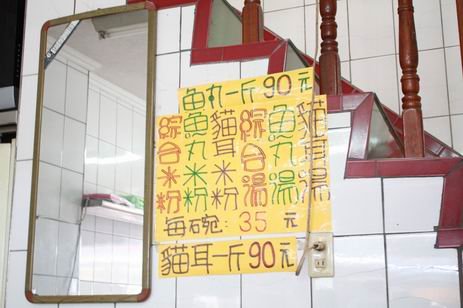 魚丸一斤90元
貓耳湯
魚丸湯
綜合湯
貓耳米粉
魚丸米粉
綜合米粉
每碗:35元
貓耳一斤90元